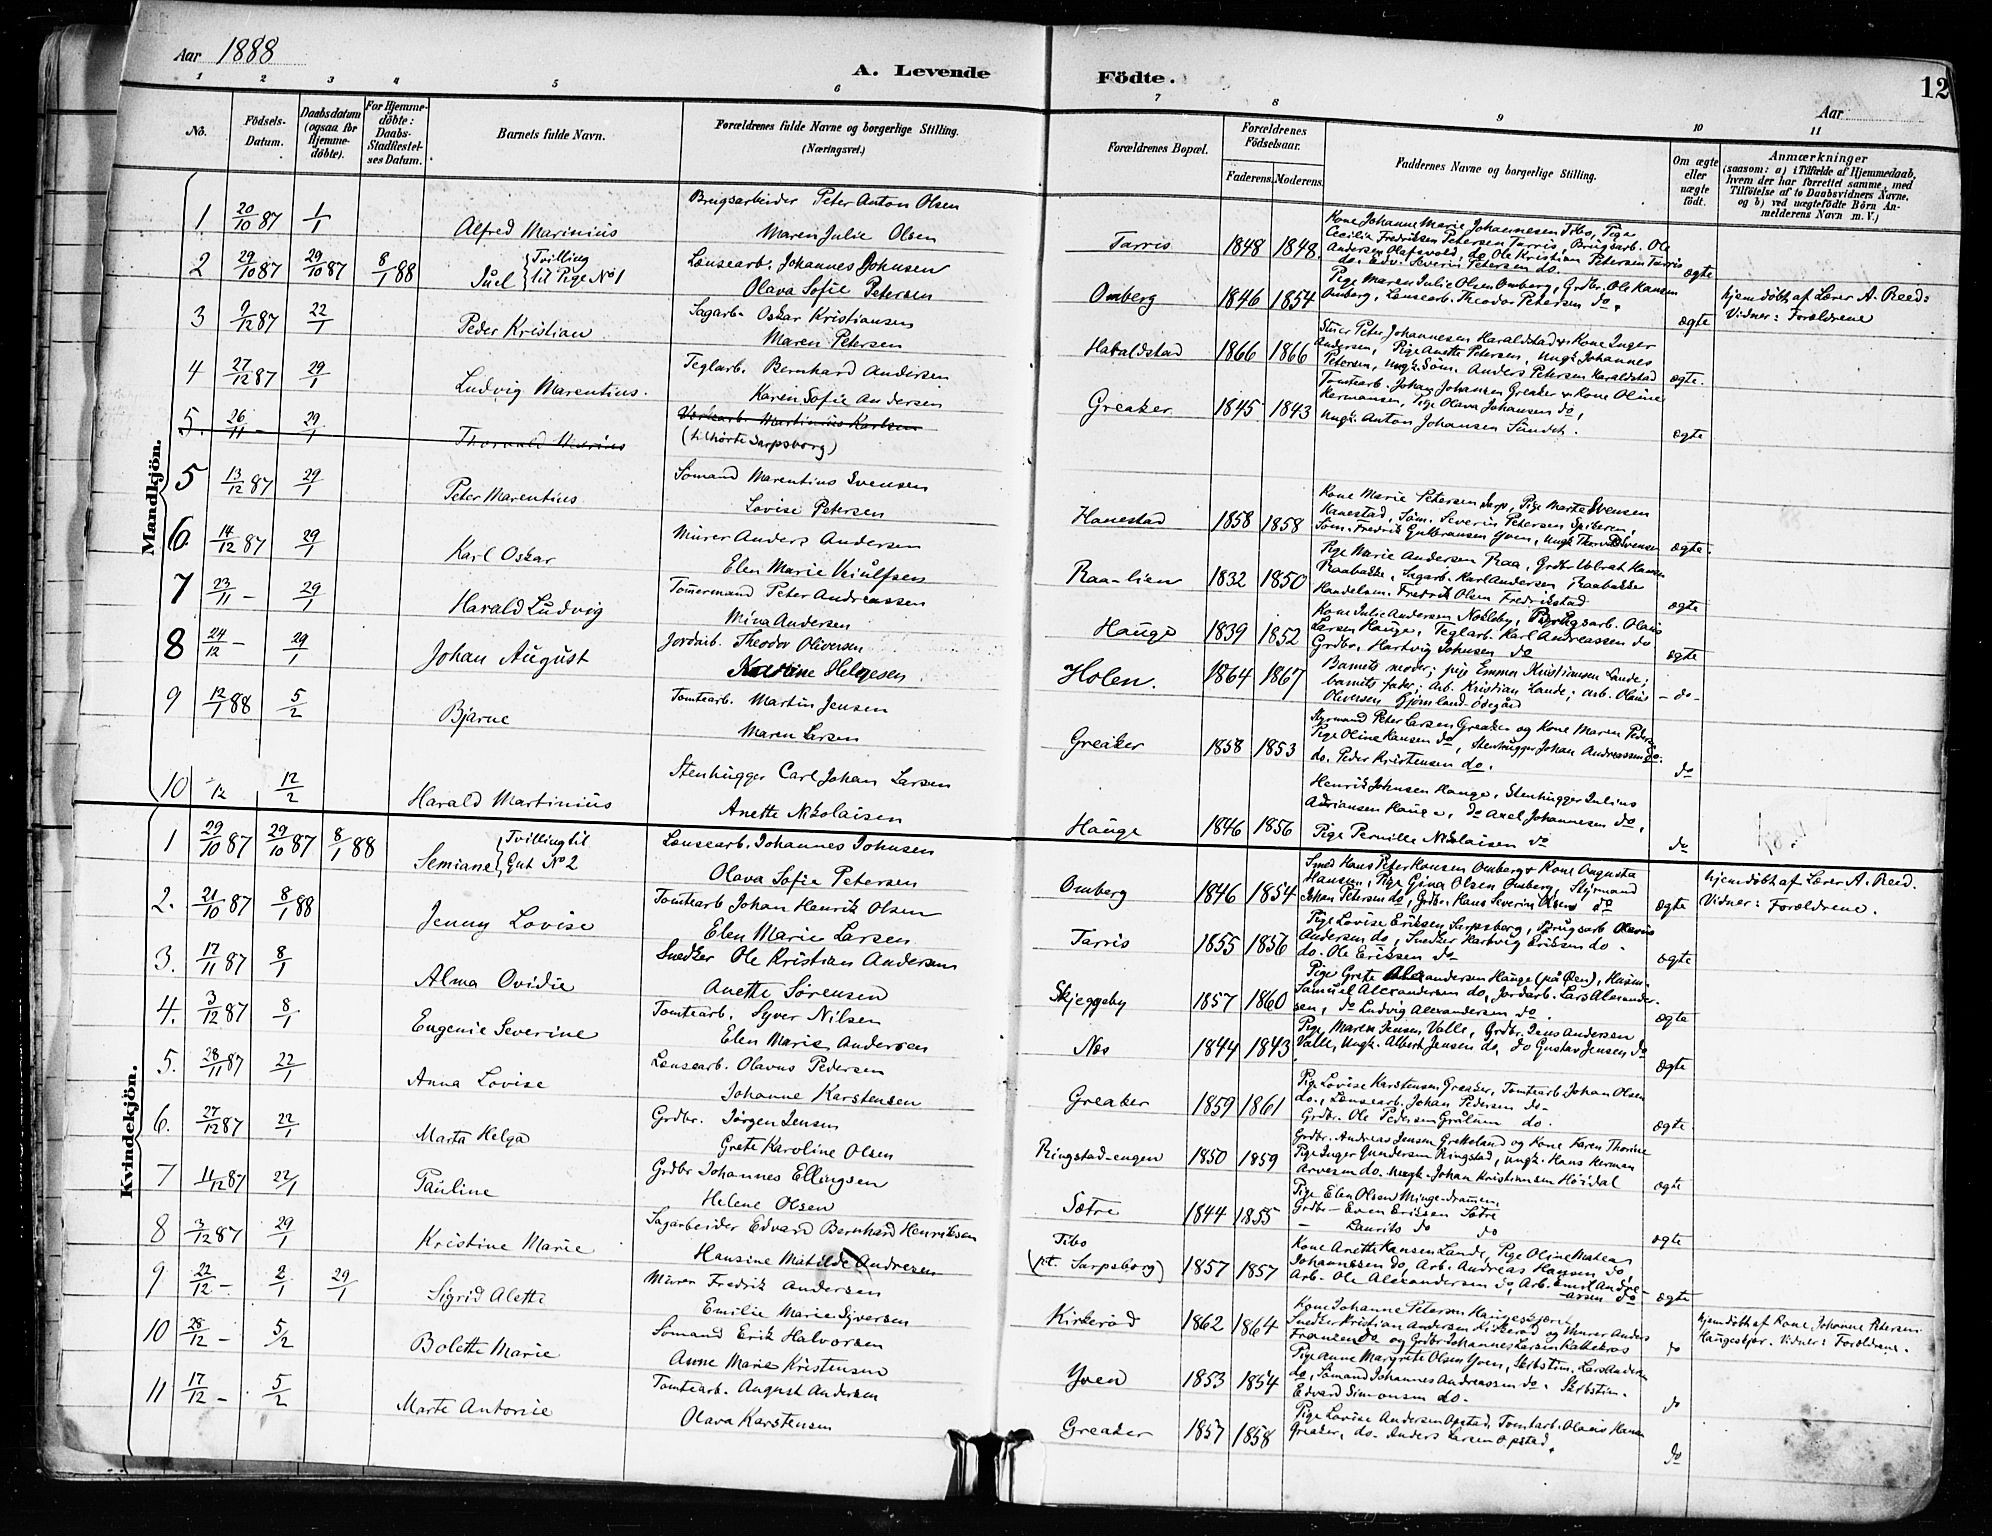 Aar 1888
A. Levende
Födte.
12
Aar
1 2 3 4 5 6 7 8 9 10 11
No.
Födsels-Datum.
Daabsdatum (ogsaa for Hjemme-döbte).
For Hjemme-döbte: Daabs-Stadfæstel-ses Datum.
Barnets fulde Navn.
Forældrenes fulde Navne og borgerlige Stilling.
(Næringsvei.)
Forældrenes Bopæl.
Forældrenes Födselsaar.
Faderens. Moderens.
Faddernes Navne og borgerlige Stilling.
Om ægte eller uægte födt.
Anmærkninger
(saasom: a) i Tilfælde af Hjemmedaab,
hvem der har forrettet samme, med
Tilföielse af to Daabsvidners Navne,
og b) ved uægtefödte Börn An-
melderens Navn m. V.)
Mandkjön.
1 20/10 87 1/1 Alfred Marinius
Brugsarbeider Peter Anton Olsen
Maren Julie Olsen
Tarris 1848 1848
Kone Johanne Marie Johannesen Tibo, Pige
Cecilia Fredriksen Petersen Tarris, Brugsarb. Ole
Andersen Olafsvold, do Ole Kristian Petersen Tarris
do. Edv. Severin Petersen do.
ægte
2 29/10 87 29/10 87 8/1 88 Juel Tvilling til Pige No 1
Lænsearb. Johannes Johnsen
Olava Sofie Petersen
Omberg 1846 1854
Pige Maren Julie Olsen Omberg, Grdbr. Ole Hansen
Omberg, Lænsearb. Theodor Petersen do.
ægte
hjemdöbt af Lærer A. Reed:
Vidner: Forældrene
3 9/12 87 22/1 Peder Kristian
Sagarb. Oskar Kristiansen
Maren Petersen
Haraldstad 1866 1866
Peter Johannesen Haraldstad & Kone Inger
Andersen, Pige Anette Petersen, Ungk. Johannes
Petersen, Ungk. Söm. Anders Petersen Haraldstad
ægte.
4 27/12 87 29/1 Ludvig Marentius.
Teglarb. Bernhard Andersen
Karen Sofie Andersen
Greaker 1845 1843
Tomtearb. Johan Johansen Greaker & Kone Oline
Hermansen, Pige Olava Johansen do,
Ungk. Anton Johansen Sandeh.
ægte
5. 26/11 - 29/1 Thorvald Marius
Martinius Karlsen
(tilhörte Sarpsborg)
5 13/12 87 29/1 Peter Marentius
Sömand Marentius Svensen
Lovise Petersen
Hanestad 1858 1858
Kone Marie Petersen Sarp, Pige Marte Svensen
Hanestad, Söm. Severin Petersen Spiberen,
Söm. Fredrik Gulbransen Yven, Ungk. Thorv. Svensen
ægte.
6. 14/12 87 29/1 Karl Oskar
Murer Anders Andersen
Elen Marie Veiulfsen
Raa-lien 1832 1850
Pige Marie Andersen Raa, Grdbr. Volrat Hansen
Raabakke, Sagarb. Karl Andersen Raabakke
Handelsm. Fredrik Olsen Fredrikstad
ægte
7 23/11 - 29/1 Harald Ludvig
Tömermand Peter Andreassen
Mina Andersen
Hauge 1839 1852
Kone Julie Andersen Nokleby, Brugsarb. Olaus
Larsen Hauge, Teglarb. Karl Andreassen do
Grdbr. Hartvig Johnsen do
ægte
8 24/12 - 29/1 Johan August
Jordarb. Theodor Oliversen
Karoline Helgesen
Holen. 1864 1867
Barnets moder; pige Emma Kristiansen Lande;
barnets fader; Arb. Kristian Lande; arb. Olaus
Oliversen Bjørnland-ødegård
- do -
9 12/1 88 5/2 Bjarne
Tomtearb. Martin Jensen
Maren Larsen
Greaker 1858 1853
Styrmand Peter Larsen Greaker og Kone Maren Peders.
Pige Oline Hansen do, Stenhugger Johan Andreassen do.
do. Peder Kristensen do.
do
10 -/12 12/2 Harald Martinius
Stenhugger Carl Johan Larsen
Anette Nikolaisen
Hauge 1846 1856
Henrik Johnsen Hauge, Stenhugger Julius
Adriansen Hauge, do Axel Johannesen do,
Pige Pernille Nikolaisen do
do
Kvindekjön.
1 29/10 87 29/10 87 8/1 88 Semiane Tvilling til Gut No 2
Lænsearb. Johannes Johnsen
Olava Sofie Petersen
Omberg 1846 1854
Smed Hans Peter Hansen Omberg & Kone Augusta
Hansen, Pige Gina Olsen Omberg, Styrmand
Johan Petersen do, Grdbr. Hans Severin Olsen do
ægte
hjemdöbt af Lærer A. Reed.
Vidner: Forældrene.
2. 21/10 87 8/1 88 Jenny Lovise
Tomtearb Johan Henrik Olsen
Elen Marie Larsen
Tarris 1855 1856
Pige Lovise Eriksen Sarpsborg, Brugsarb Olavus
Andersen do, Snedker Hartvig Eriksen do -
do. Ole Erikssen do -
ægte
3. 17/11 87 8/1 Alma Ovidie
Snedker Ole Kristian Andersen
Anette Sörensen
Skjeggeby 1857 1860
Pige Grete Alexandersen Hauge (på Ren), Husm.
Samuel Alexandersen do, Jordarb. Lars Alexander-
sen, do Ludvig Alexandersen do.
ægte
4. 3/12 87 8/1 Eugenie Severine
Tomtearb. Syver Nilsen
Elen Marie Andersen
Næs 1844 1843
Pige Maren Jensen Valle, Grdbr. Jens Andersen
Valle, Ungk. Albert Jensen do, do Gustav Jensen do
ægte
5. 28/11 87 22/1 Anna Lovise
Lænsearb. Olavus Pedersen
Johanne Karstensen
Greaker 1859 1861
Pige Lovise Karstensen Greaker, Tomtearb. Johan Olsen
do., Lænsearb. Johan Pedersen do -
Grdbr. Ole Pedersen Grålum do.
ægte
6. 27/12 87 22/1 Marta Helga
Grdbr. Jörgen Jensen
Grete Karoline Olsen
Ringstad-engen 1850 1859
Grdbr. Andreas Jensen Grekeland og Kone Karen Thorine
Pige Inger Gundersen Ringstad, ungk. Hans Herman
Arvesen do. ungk. Johan Kristiansen Höidal
ægte
7 11/12 87 22/1 Pauline
Grdbr Johannes Ellingsen
Helene Olsen
Sætre 1844 1855
Pige Elen Olsen Minge-drammen,
Grdbr - Even Eriksen Sætre
- Laurits do do
ægte
8 3/12 87 29/1 Kristine Marie
Sagarbeider Edvard Bernhard Henriksen
Hansine Matilde Andresen
Tibo
(pt. Sarpsborg) 1857 1857
Kone Anette Hansen Lande, Pige Oline Mathea
Johannessen do, Arb. Andreas Hansen do,
Arb. Ole Alexandersen do, Arb. Emil Andre-
assen do
ægte
9 22/12 - 2/1 29/1 Sigrid Alette
Murer Fredrik Andersen
Emilie Marie Syversen
Kirkeröd 1862 1864
Kone Johanne Petersen Haugeskjær,
Snedker Kristian Andersen Kirkeröd og Murer Anders
Fransen do og Grdbr. Johannes Larsen Kathekros
do
hjemdöbt af Kone Johanne Petersen
Haugeskjær. Vidner: Forældrene.
10 28/12 - 5/2 Bolette Marie
Sömand Erik Halvorsen
Anne Marie Kristensen
Yven 1853 1854
Pige Anne Margrete Olsen Yven, Skrbstöm. Lars Andersen
do, Sömand Johannes Andreassen do. Skrbstöm.
Edvard Simonsen do.
do
11 17/12 - 5/2 Marte Antonie
Tomtearb. August Andersen
Olava Karstensen
Greaker 1857 1858
Pige Lovise Andersen Opstad, Tomtarb. Olaus Hansen
Greaker, do. Anders Larsen Opstad,
do